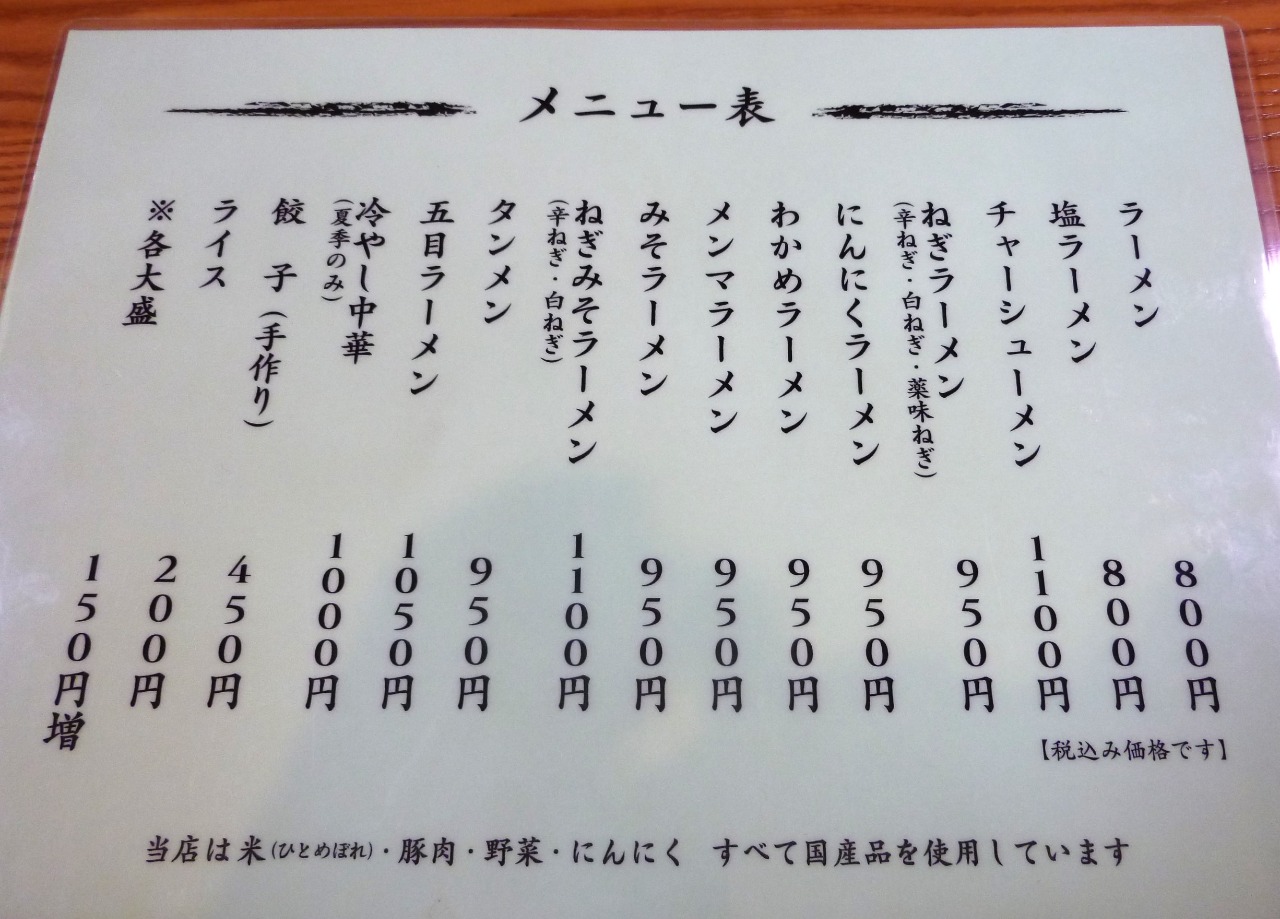 メニュー表
ラーメン 800円
塩ラーメン 800円
チャーシューメン 1100円
ねぎラーメン 950円
(辛ねぎ・白ねぎ・薬味ねぎ)
にんにくラーメン 950円
わかめラーメン 950円
メンマラーメン 950円
みそラーメン 950円
ねぎみそラーメン 1100円
(辛ねぎ・白ねぎ)
タンメン 950円
五目ラーメン 1050円
冷やし中華 1000円
(夏季のみ)
餃子(手作り) 450円
ライス 200円
※各大盛 150円増
【税込み価格です】
当店は米(ひとめぼれ)・豚肉・野菜・にんにく すべて国産品を使用しています